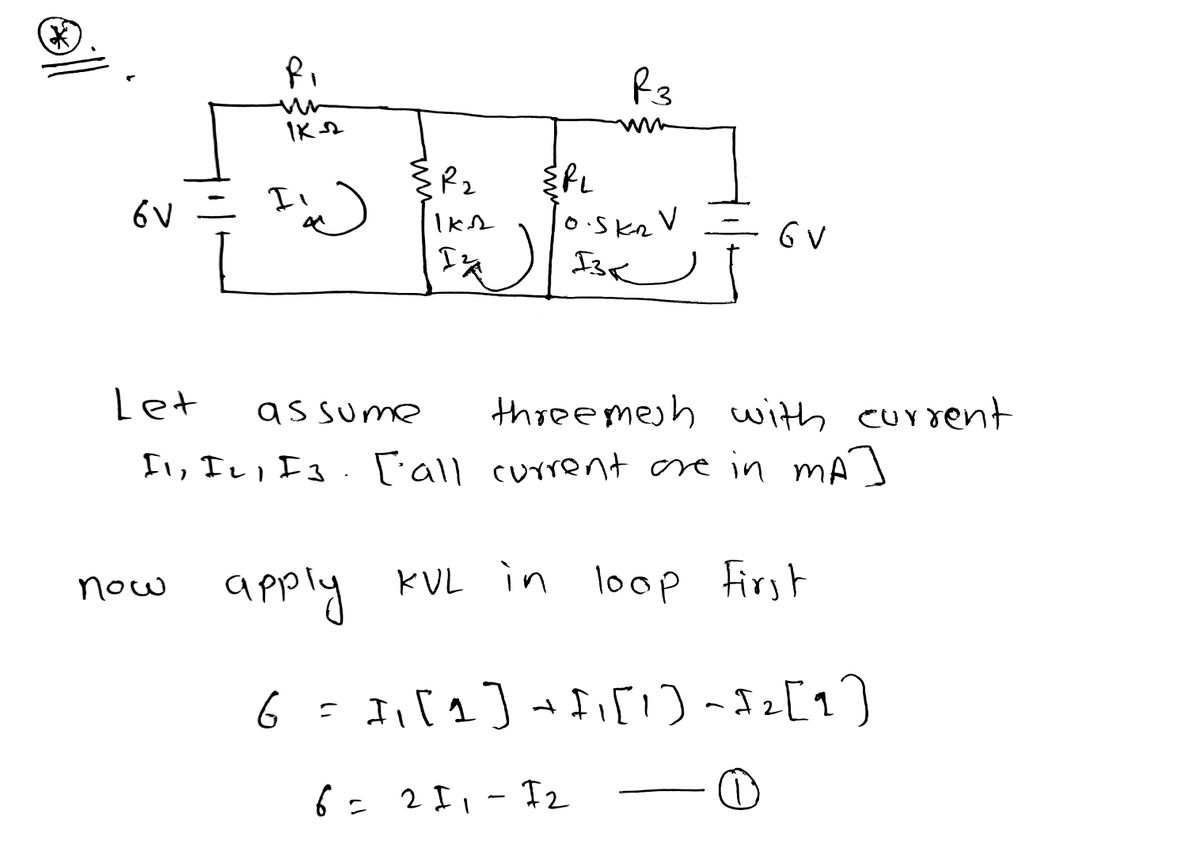 *.
R1
R3
1KΩ
R2
RL
6V
I1
1kΩ
0.5kΩ V
6V
I2
I3
Let assume threemesh with current
I1, I2, I3. [all current are in mA]
now apply KVL in loop first
6 = I1[1] + I1[1) - I2[1)
6 = 2I1 - I2 — ①